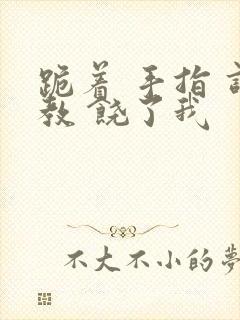 跪着 手指
教 饶了我
不大不小的